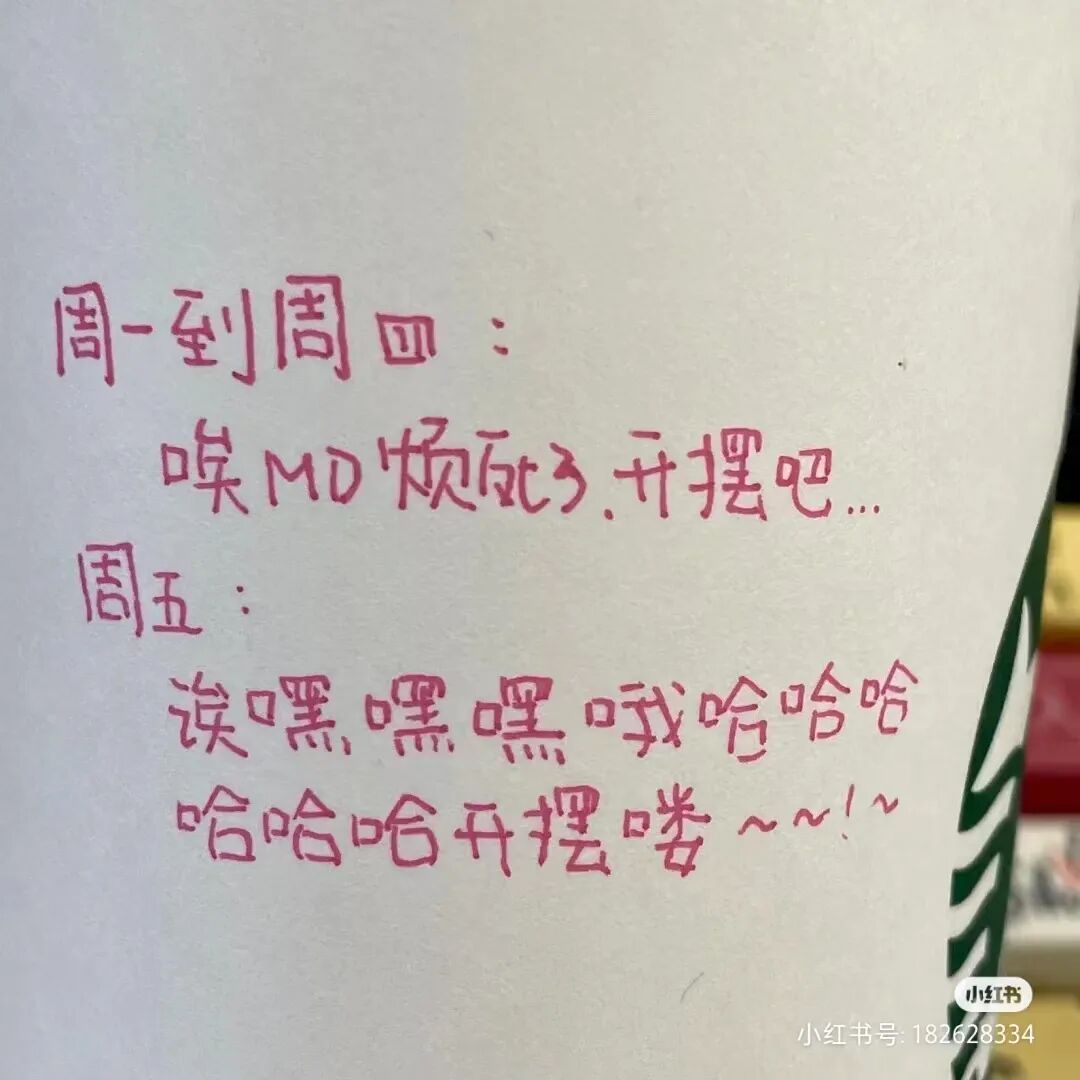 周一到周四：
唉MD烦死了.开摆吧...
周五：
诶嘿嘿嘿哦哈哈哈
哈哈哈开摆喽~~!~
小红书
小红书号: 182628334